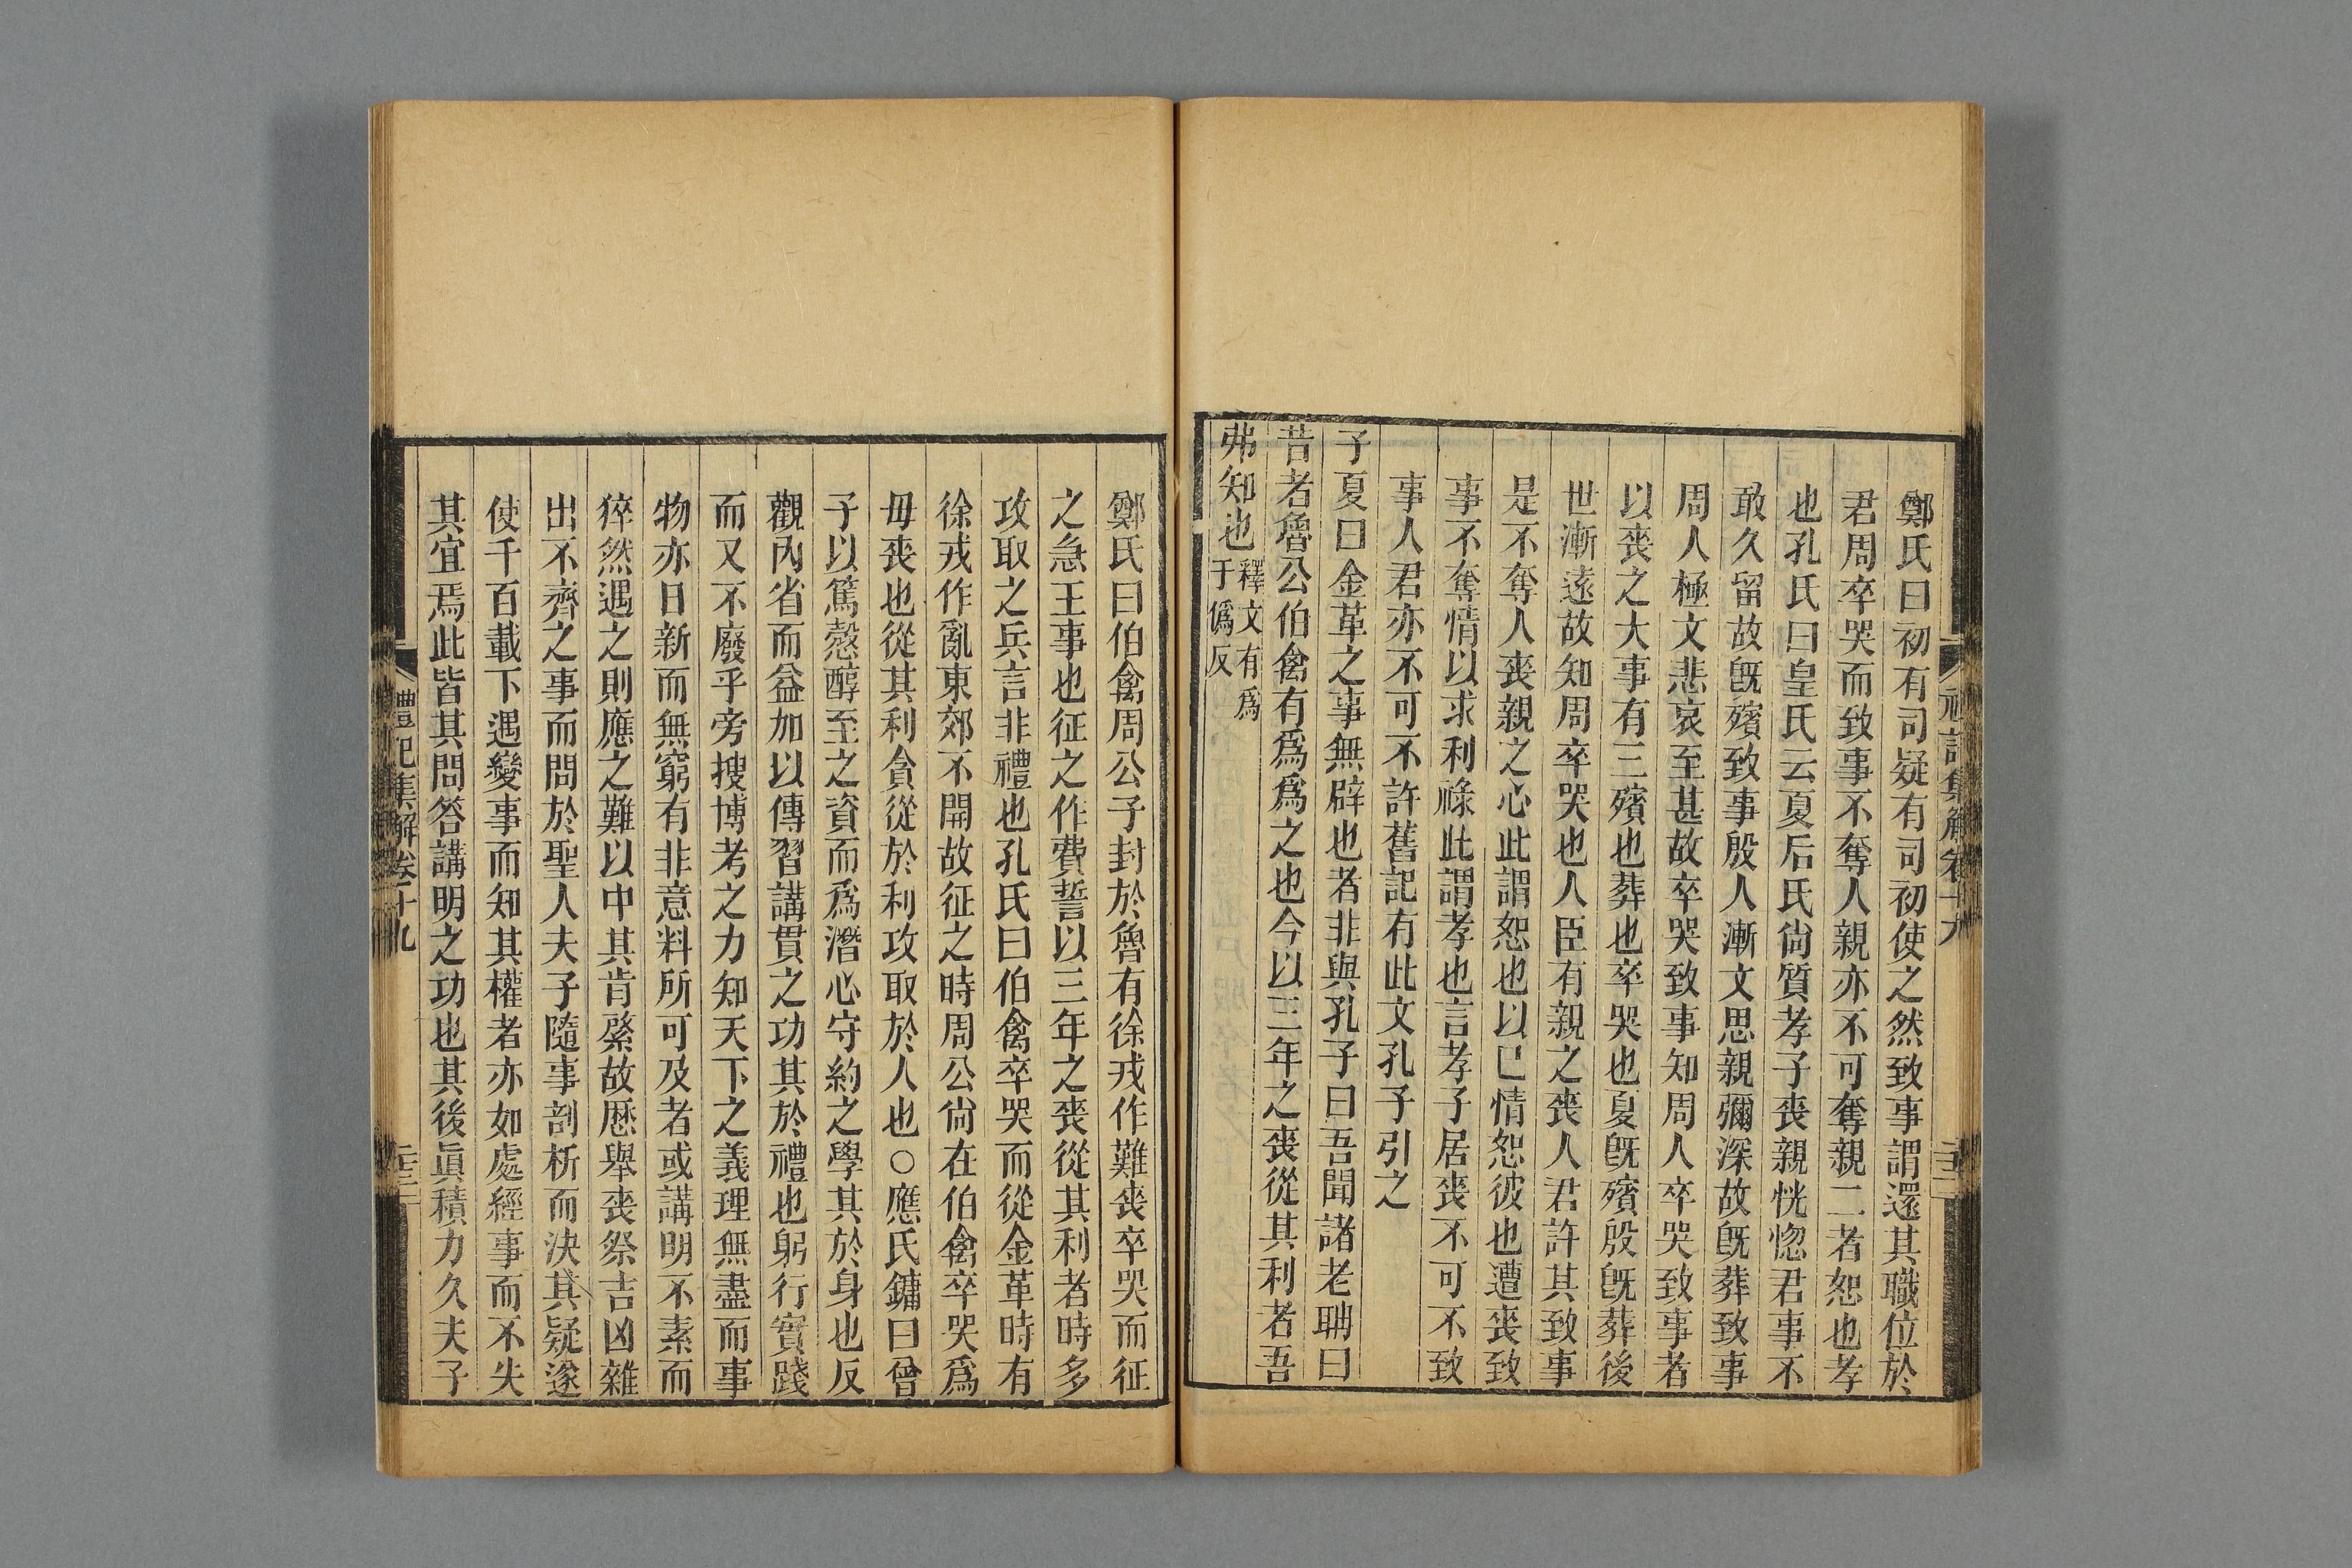 鄭氏曰初有司疑有司初使之然致事謂還其職位於
君周卒哭而致事不奪人親亦不可奪親二者恕也孝
也孔氏曰皇氏云夏后氏尙質孝子喪親恍惚君事不
敢久留故旣殯致事殷人漸文思親彌深故旣葬致事
周人極文悲哀至甚故卒哭致事知周人卒哭致事者
以喪之大事有三殯也葬也卒哭也夏旣殯殷旣葬後
世漸遠故知周卒哭也人臣有親之喪人君許其致事
是不奪人喪親之心此謂恕也以已情恕彼也遭喪致
事不奪情以求利祿此謂孝也言孝子居喪不可不致
事人君亦不可不許舊記有此文孔子引之
子夏曰金革之事無辟也者非與孔子曰吾聞諸老聃曰
昔者魯公伯禽有爲爲之也今以三年之喪從其利者吾
弗知也釋文有爲
于僞反
鄭氏曰伯禽周公子封於魯有徐戎作難喪卒哭而征
之急王事也征之作費誓以三年之喪從其利者時多
攻取之兵言非禮也孔氏曰伯禽卒哭而從金革時有
徐戎作亂東郊不開故征之時周公尙在伯禽卒哭爲
毋喪也從其利貪從於利攻取於人也○應氏鏞曰曾
子以篤慤醇至之資而爲潛心守約之學其於身也反
觀內省而益加以傳習講貫之功其於禮也躬行實踐
而又不廢乎旁搜博考之力知天下之義理無盡而事
物亦日新而無窮有非意料所可及者或講明不素而
猝然遇之則應之難以中其肯綮故歷舉喪祭吉凶雜
出不齊之事而問於聖人夫子隨事剖析而決其疑遂
使千百載下遇變事而知其權者亦如處經事而不失
其宜焉此皆其問答講明之功也其後眞積力久夫子
禮記集解卷十九